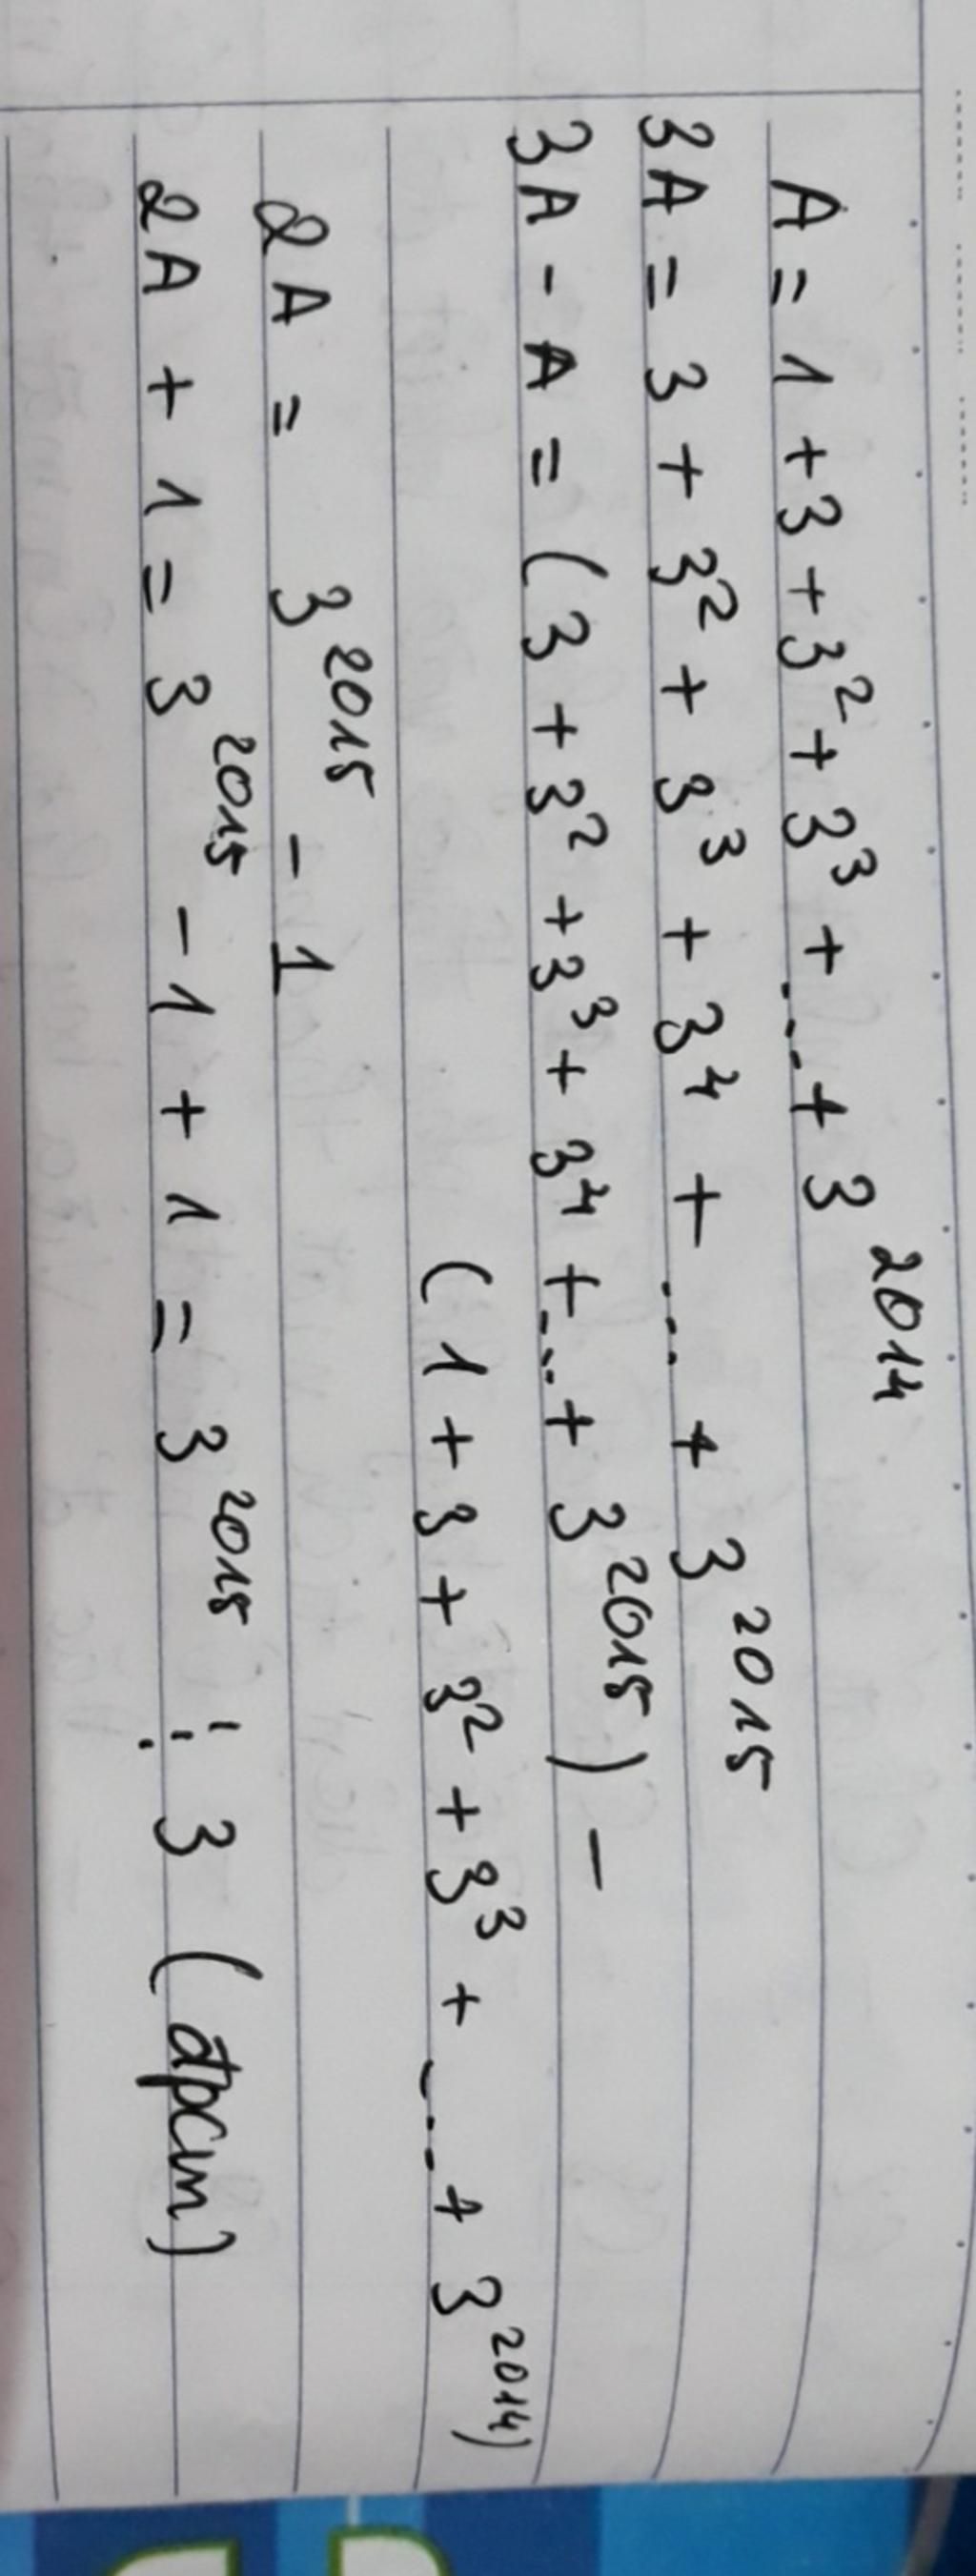 A = 1 + 3 + 3² + 3³ + ... + 3²⁰¹⁴
3A = 3 + 3² + 3³ + 3⁴ + ... + 3²⁰¹⁵
3A - A = (3 + 3² + 3³ + 3⁴ + ... + 3²⁰¹⁵) -
(1 + 3 + 3² + 3³ + ... + 3²⁰¹⁴)
2A = 3²⁰¹⁵ - 1
2A + 1 = 3²⁰¹⁵ - 1 + 1 = 3²⁰¹⁵ ⋮ 3 (đpcm)